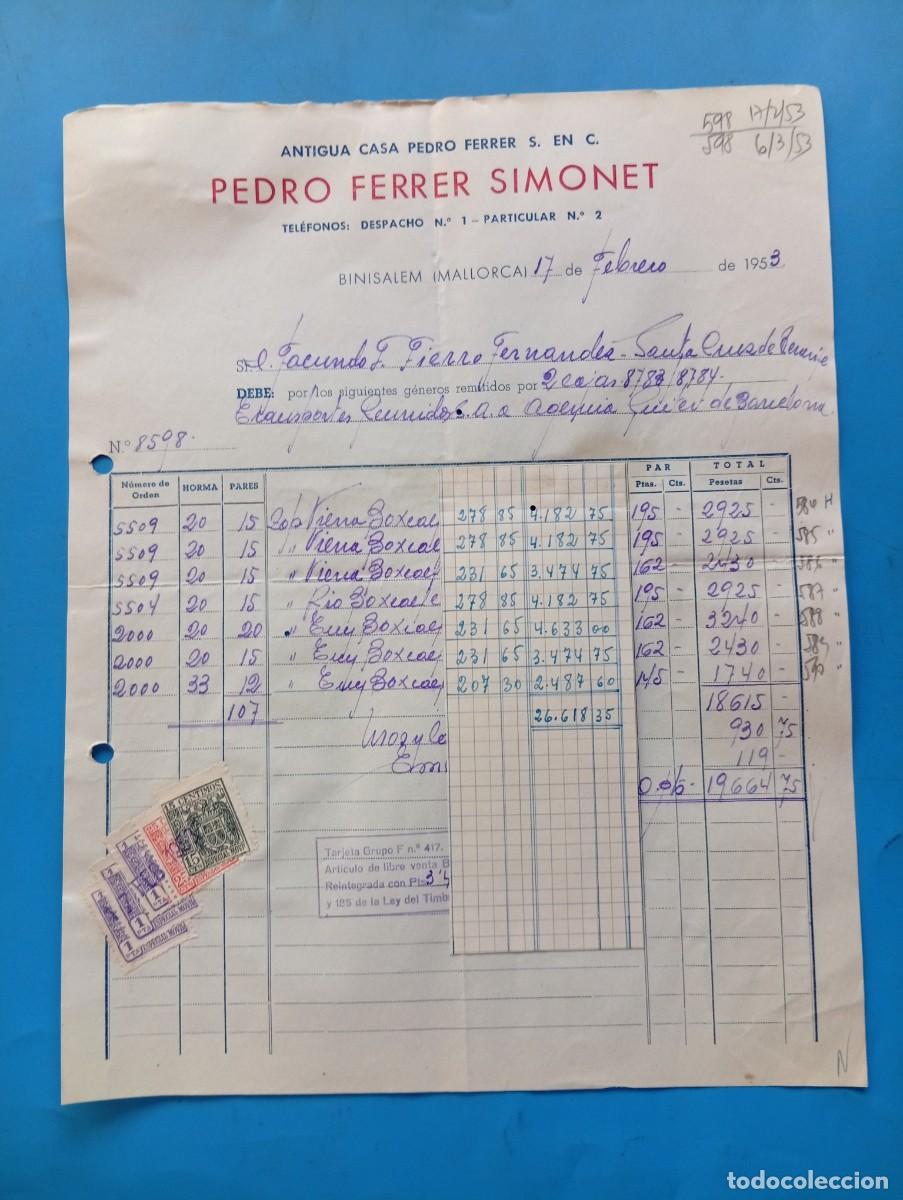 598 17/2/53
598 6/3/53
ANTIGUA CASA PEDRO FERRER S. EN C.
PEDRO FERRER SIMONET
TELÉFONOS: DESPACHO N.º 1 - PARTICULAR N.º 2
BINISALEM (MALLORCA) 17 de Febrero de 1953
Facundo F. Fierro Fernandez - Santa Cruz de Tenerife
DEBE: por los siguientes géneros remitidos por 2 cajas 8783/8784.
de Barcelona
N.º 8598.
Número de Orden HORMA PARES PAR Ptas. Cts. TOTAL Pesetas Cts.
5509 20 15 Viena Boxcal 278 85 4.182 75 195 - 2925 - 584 H
5509 20 15 " Viena Boxcal 278 85 4.182 75 195 - 2925 - 585 "
5509 20 15 " Viena Boxcal 231 65 3.474 75 162 - 2430 - 586 "
5504 20 15 " Rio Boxcal 278 85 4.182 75 195 - 2925 - 587 "
2000 20 20 " Boxcal 231 65 4.633 00 162 - 3240 - 588 "
2000 20 15 " Boxcal 231 65 3.474 75 162 - 2430 - 589 "
2000 33 12 " Boxcal 207 30 2.487 60 145 - 1740 - 590 "
107 26.618 35 18615 -
930 75
119 -
19664 75
15 CENTIMOS
1 PTA
Tarjeta Grupo F n.º 417.
Articulo de libre venta B
Reintegrada con Pts 3'
y 185 de la Ley del Timb
N
todocoleccion